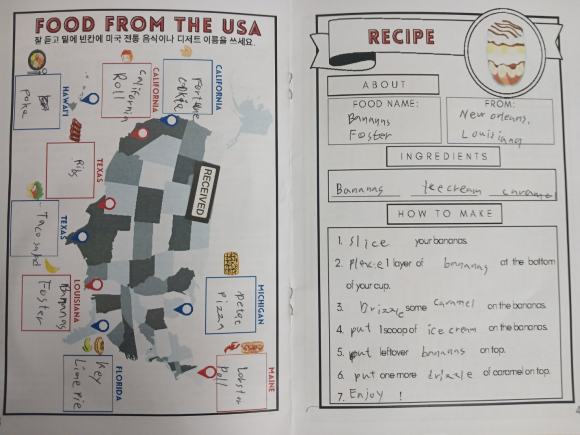 FOOD FROM THE USA
잘 듣고 밑에 빈칸에 미국 전통 음식이나 디저트 이름을 쓰세요.
HAWAII
Poke
CALIFORNIA
California
Roll
CALIFORNIA
Fortune
cookie
TEXAS
Ribs
RECEIVED
TEXAS
Taco salad
LOUISIANA
Bananas
Foster
MICHIGAN
pizza
FLORIDA
Key
Lime Pie
MAINE
Lobster
Roll
RECIPE
ABOUT
FOOD NAME:
Bananas
Foster
FROM:
New orleans,
Louisiana
INGREDIENTS
Bananas Icecream caramel
HOW TO MAKE
1. slice your bananas.
2. place 1 layer of bananas at the bottom
of your cup.
3. Drizzle some caramel on the bananas.
4. put 1 scoop of ice cream on the bananas.
5. put leftover bananas on top.
6. put one more drizzle of caramel on top.
7. Enjoy !
4